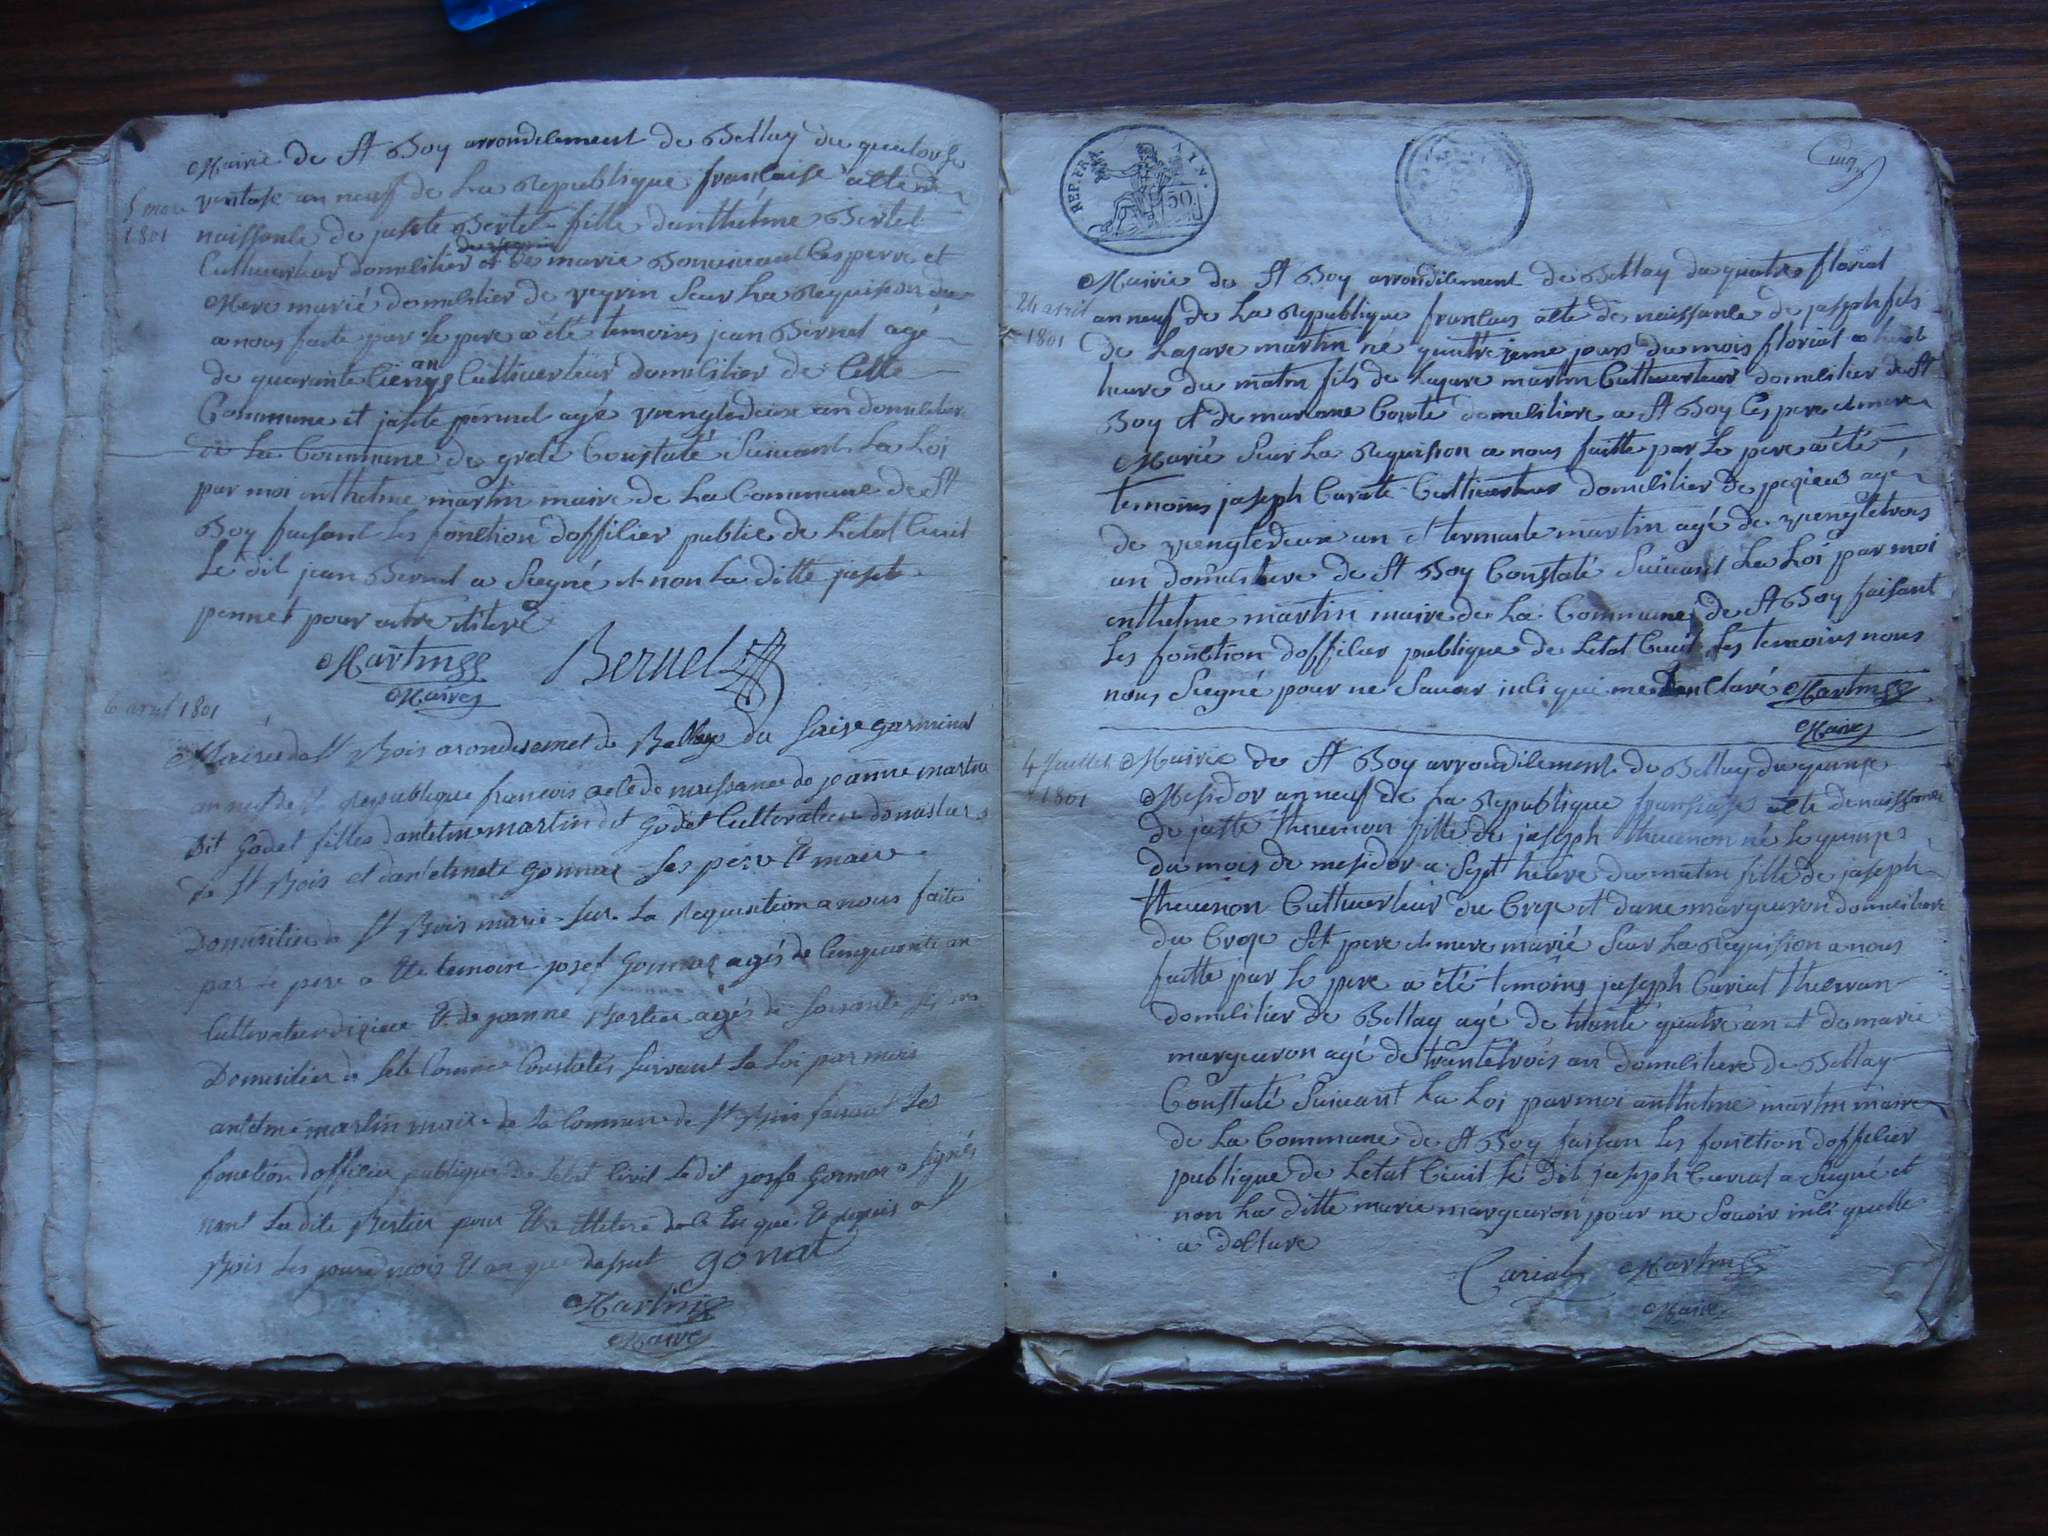 Mairie de St Boy arrondilement de Bellay du quatorse
5 mars
1801
ventose an neuf de La Republique francaise acte de
naissanse de jasete Bertet fille danthelme Bertet
Cultiverteur domilitier de veyrin et de marie les perre et
Mere marié domilitier de veyrin Seur La Requision
a nous faite par le pere a été temoins jean Bernet agé
de quarante cienqs an Cultiverteur domilitier de Cette
Commune et jasete pennet agé vrengtedeux an domilitiere
de La Commune de grolé Constaté Suiuant La Loi
par moi enthelme martin maire de La Commune de St
Boy faisant les fonction dofficier public de Letat Ciuil
Le dit jean Bernet a Siegné et non La ditte jasete
pennet pour
Martin
Maire
Bernet
6 avril 1801
Mairie de St Bois arondisemet de Bellay du Seise germinal
an neuf de la Republique francois acte de naissance de joanne martin
Dit Godet filles dantelme martin dit Godet Cultivateur
de St Bois et dantelmete Gonnat Ses père Et maire
Domisilier de St Bois marié Sur La Requisition a nous faite
par le pere a Ete temoin josef Gonnat agés de Cinquante an
Cultivateur Et de joanne Bertier agés de Soisante
Domisilier de Sete Comune Constatés Suivant La Loi par moi
antelme martin maire de la Commune de St Bois faisant Les
fonction dofficier publique de Letat Civil Ledit josef Gonnat a Signés
nont Ladite Bertier pour
Bois Les jour mois Et an que desut gonat
Martin
Maire
REP. FRA.
50
Cinq
Mairie de St Boy arrondilement de Bellay du quatre floreal
24 avril
1801
an neuf de La Republique francais acte de naissanse de jaseph fils
de Lasare martin né quatre jeme jours du mois floreal a
heure du matin fils de Lasare martin Cultiverteur domilitier de St
Boy et de marianne domilitiere a St Boy les pere et mere
Marié Seur La Requision a nous faitte par Le pere a été
temoins jaseph Cultiverteur domilitier de pezieus agé
de vrengtedeux an et martin agé de vrengtetrois
an domilitiere de St Boy Constaté Suiuant La Loi par moi
enthelme martin maire de La Commune de St Boy faisant
Les fonction dofficier publique de Letat Ciuil Les temoins nous
nous Siegné pour ne Sauoir Martin
Maire
4 Juillet
1801
Mairie de St Boy arrondilement de Bellay du quinse
Mesidor an neuf de La Republique fransaise acte de naissanse
de jasete theuenon fille de jaseph theuenon né le quinse
du mois de mesidor a Sept heure du matin fille de jaseph
theuenon Cultiverteur du Croze et dane margueron domilitiere
du Croze Set pere et mere marié Seur La Requision a nous
faitte par Le pere a été temoins jaseph Curial
domilitier de Bellay agé de trante quatre an et de marie
margueron agé de trantetrois an domilitiere de Bellay
Constaté Suiuant La Loi par moi anthelme martin maire
de La Commune de St Boy faisan Les fonction dofficier
publique de Letat Ciuil Le Dit jaseph Curial a Siegné et
non La ditte marie margueron pour ne Sauoir
a declare
Curial Martin
Maire